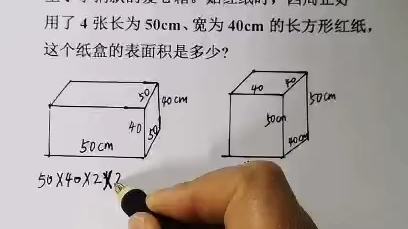 用了4张长为50cm、宽为40cm的长方形红纸，
这个纸盒的表面积是多少?
50
40cm
40
50
50cm
40
40
50cm
50cm
40cm
50×40×2×2